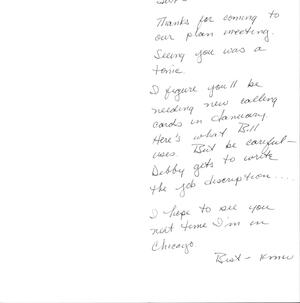 Thanks for coming to
our plan meeting.
Seeing you was a
tonic.
I figure you'll be
needing new calling
cards in January.
Here's what Bill
uses. But be careful —
Debby gets to write
the job discription....
I hope to see you
next time I'm in
Chicago.
Best —